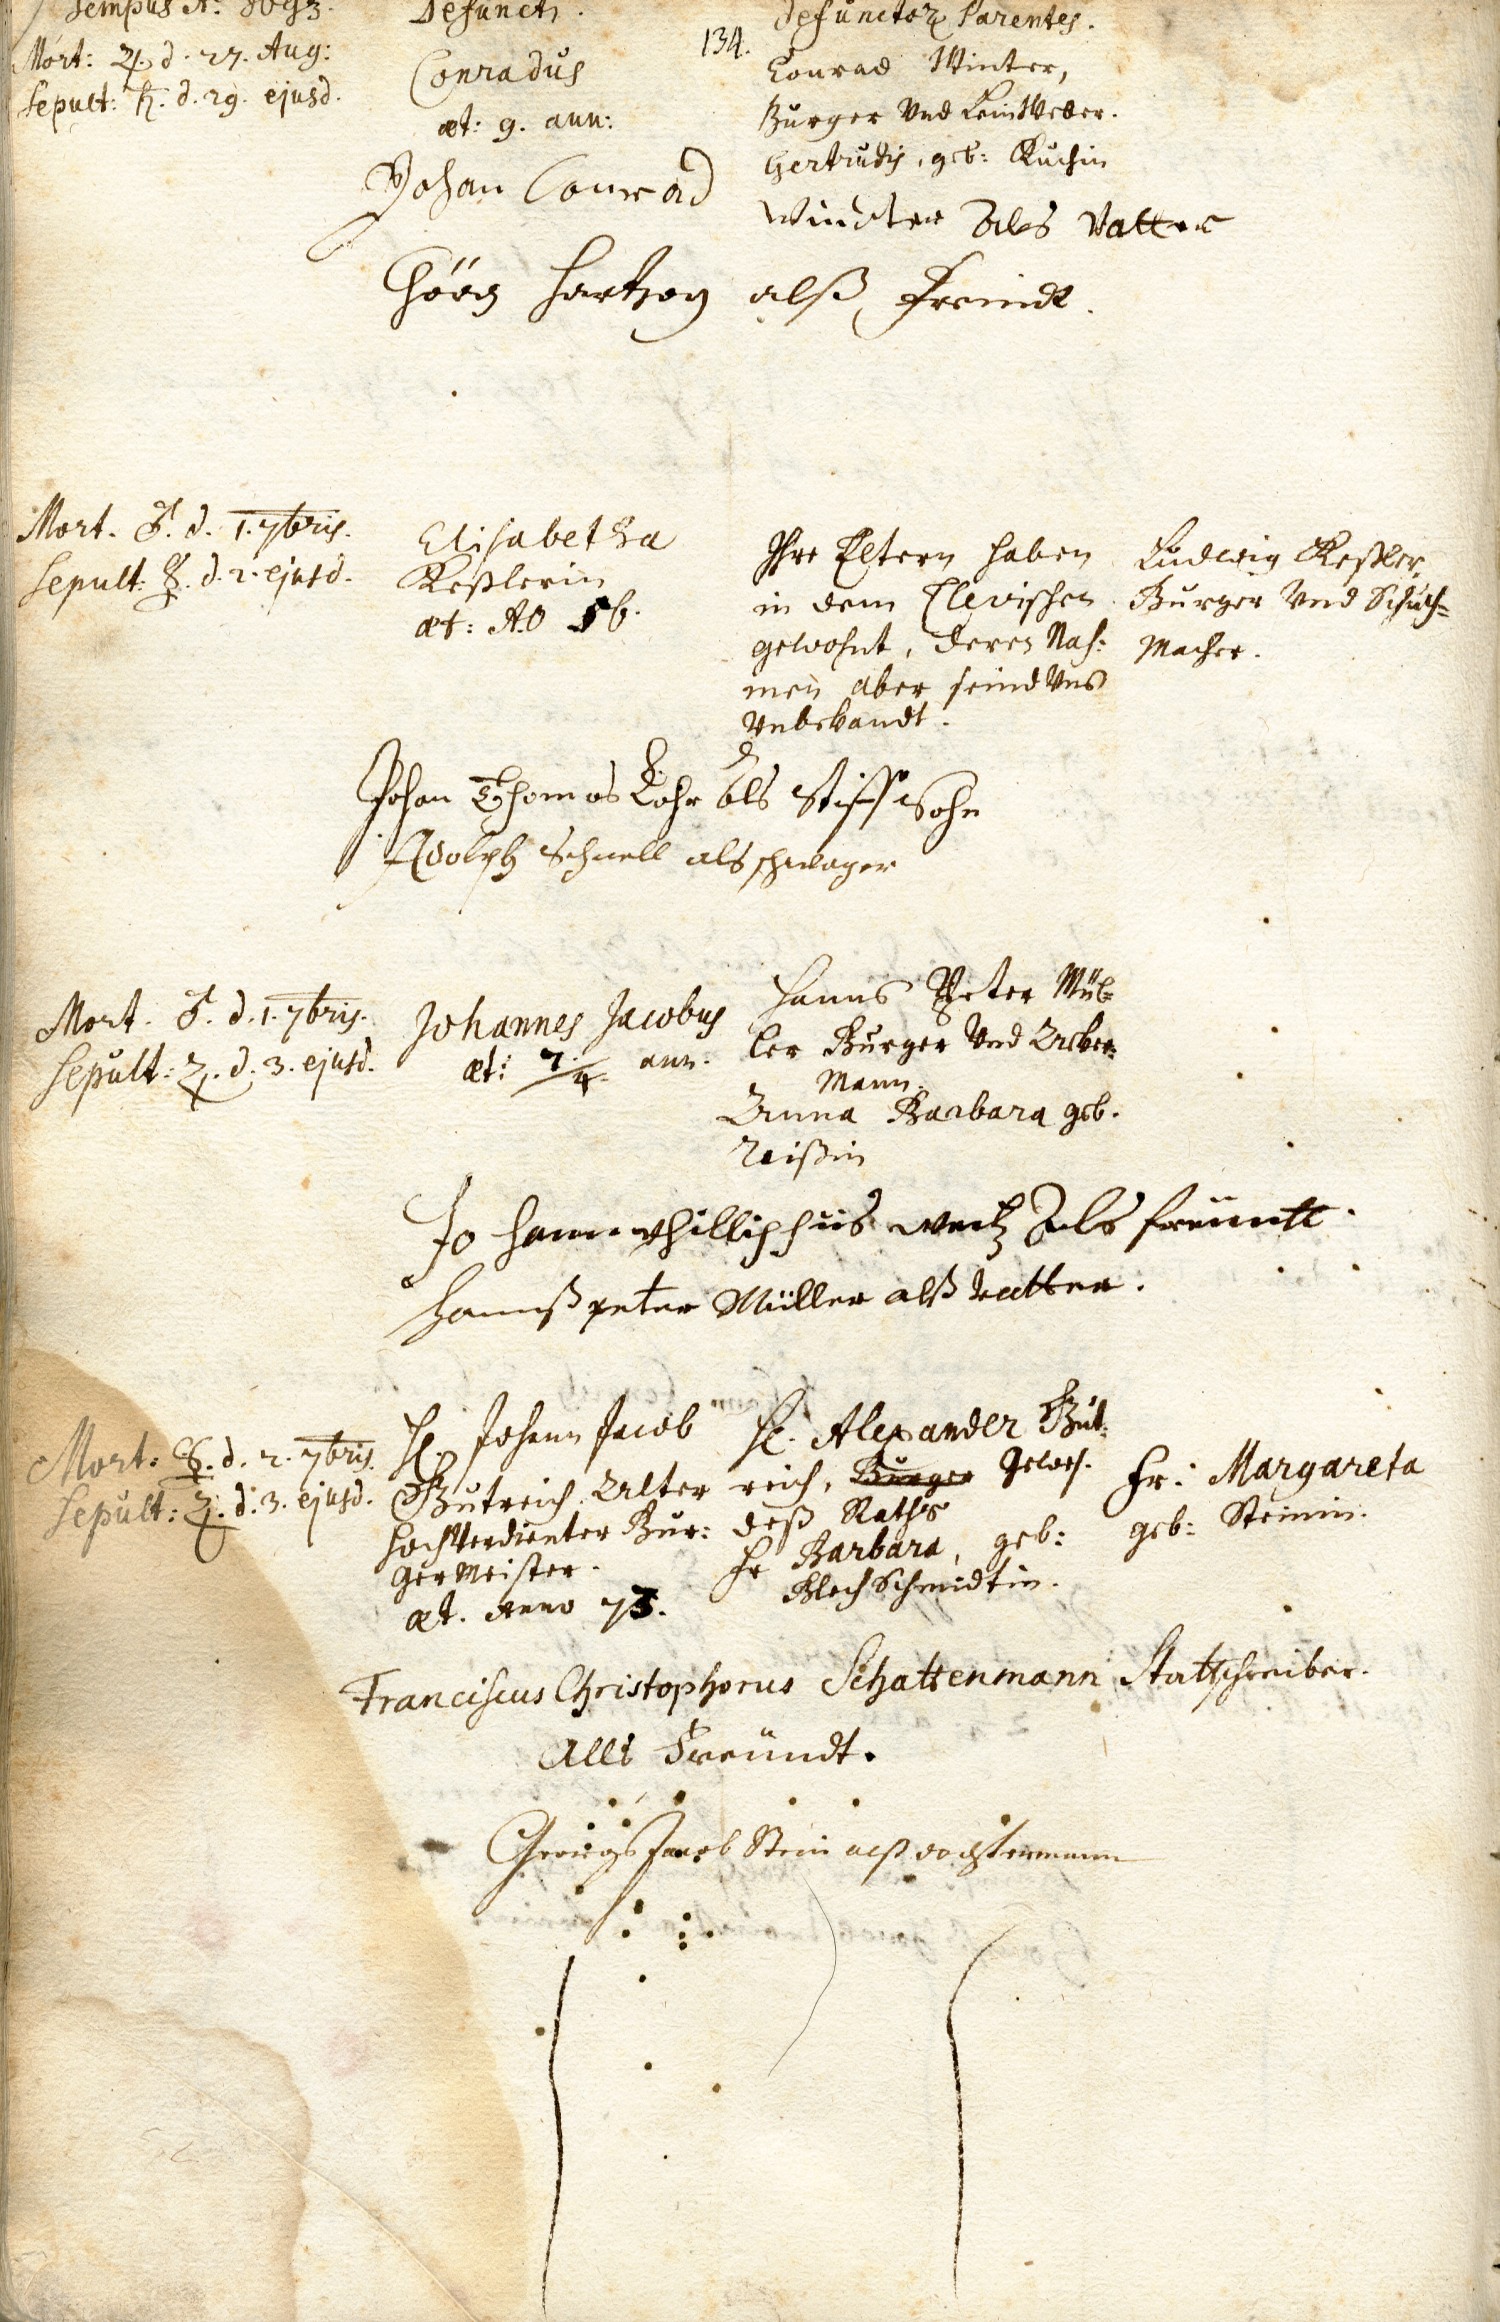 Tempus Aõ: 1693.
Defuncti.
134.
Defunctor Parentes.
Mort: ♃. d. 27. Aug:
Sepult: ♄. d. 29. ejusd.
Conradus
æt: 9. ann:
Conrad Winter,
Burger Vnd LeinWeber.
Gertrudis, geb: Kuchin
Johan Conrad Windter Als Vatter
Görg Hertzog alß Freindt.
Mort. ♂. d. 1. 7bris.
Sepult. ☿. d. 2. ejusd.
Elisabetha
Keßlerin
æt: AÕ 56.
Ihre Eltern haben
in dem Clevischen
gewohnt, deren Nah:
men aber seind Vns
Vnbekandt.
Ludwig Keßler,
Burger Vnd Schuch=
Macher.
Johan Thomas Lohr als Stiff Sohn
Adolph Schnell als schwager
Mort. ♂. d. 1. 7bris.
Sepult: ♃. d. 3. ejusd.
Johannes Jacobus
æt: 7/4. ann.
Hanns Peter Mül=
ler Burger Vnd Acker=
Mann.
Anna Barbara geb.
Reißin
Johann Phillipphus Als freundt.
Hannß peter Müller alß Vatter.
Mort: ☿. d. 2. 7bris.
Sepult: ♃. d. 3. ejusd.
H. Johann Jacob
Gutreich Alter
hochVerdienter Bur:
germeister.
æt. Anno 73.
H. Alexander Gut:
reich, Burger Gewes.
deß Raths
Fr Barbara, geb:
BlechSchmidtin.
Fr: Margareta
geb: Steinin.
Franciscus Christophorus Schattenmann Stattschreiber.
Allß Freündt.
Georgs Jacob Stein alß dochtermann